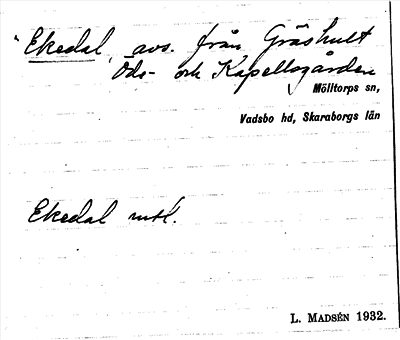 "Ekedal, avs. från Gräshult
Öds- och Kapellsgården
Mölltorps sn,
Vadsbo hd, Skaraborgs län
Ekedal mtl.
L. MADSÉN 1932.